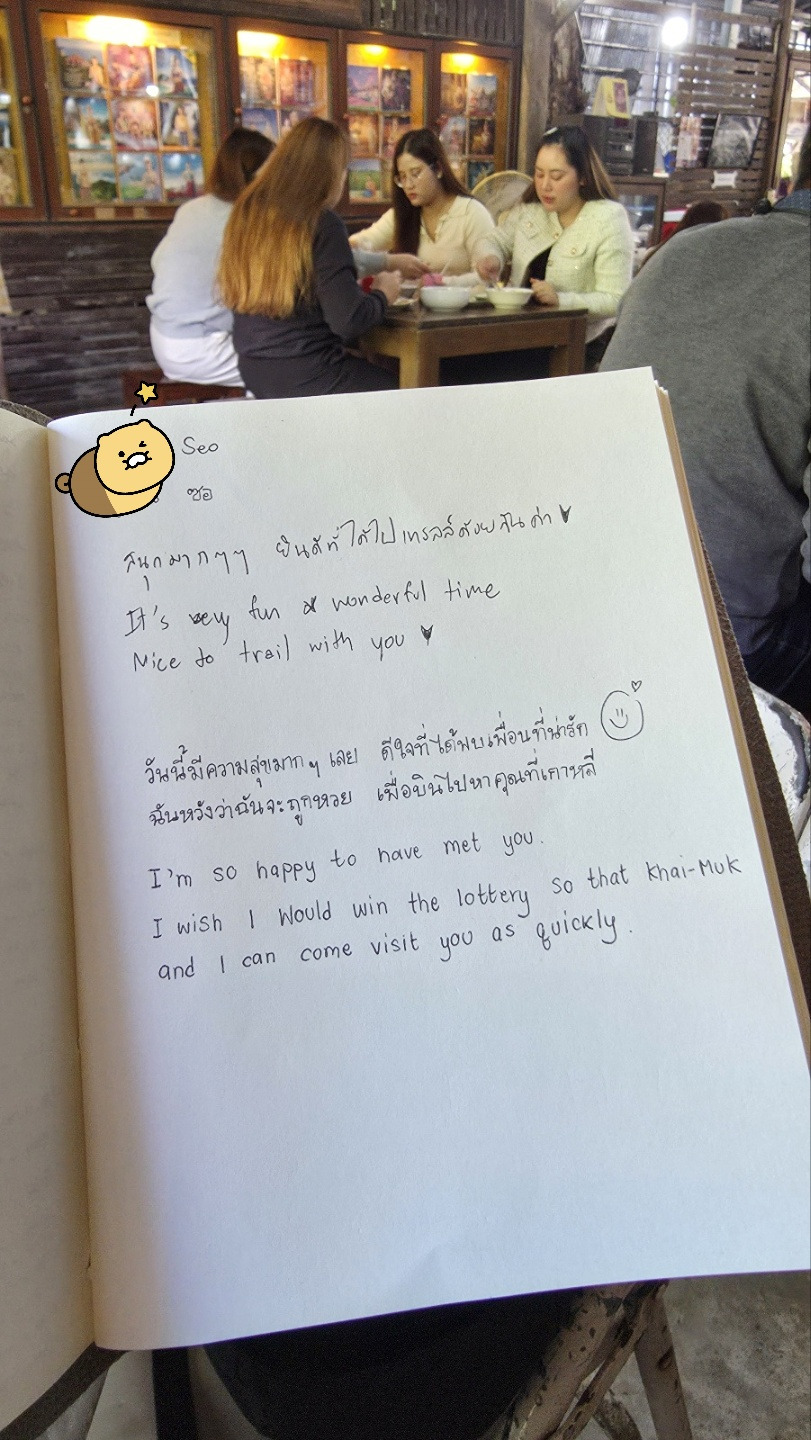 Seo
ซอ
สนุกมากๆๆ ยินดีที่ได้ไปเทรลล์ด้วยกันค่า
It's very fun & wonderful time
Nice to trail with you
วันนี้มีความสุขมากๆ เลย ดีใจที่ได้พบเพื่อนที่น่ารัก
ฉันหวังว่าฉันจะถูกหวย เพื่อบินไปหาคุณที่เกาหลี
I'm so happy to have met you.
I wish I would win the lottery so that khai-Muk
and I can come visit you as quickly.